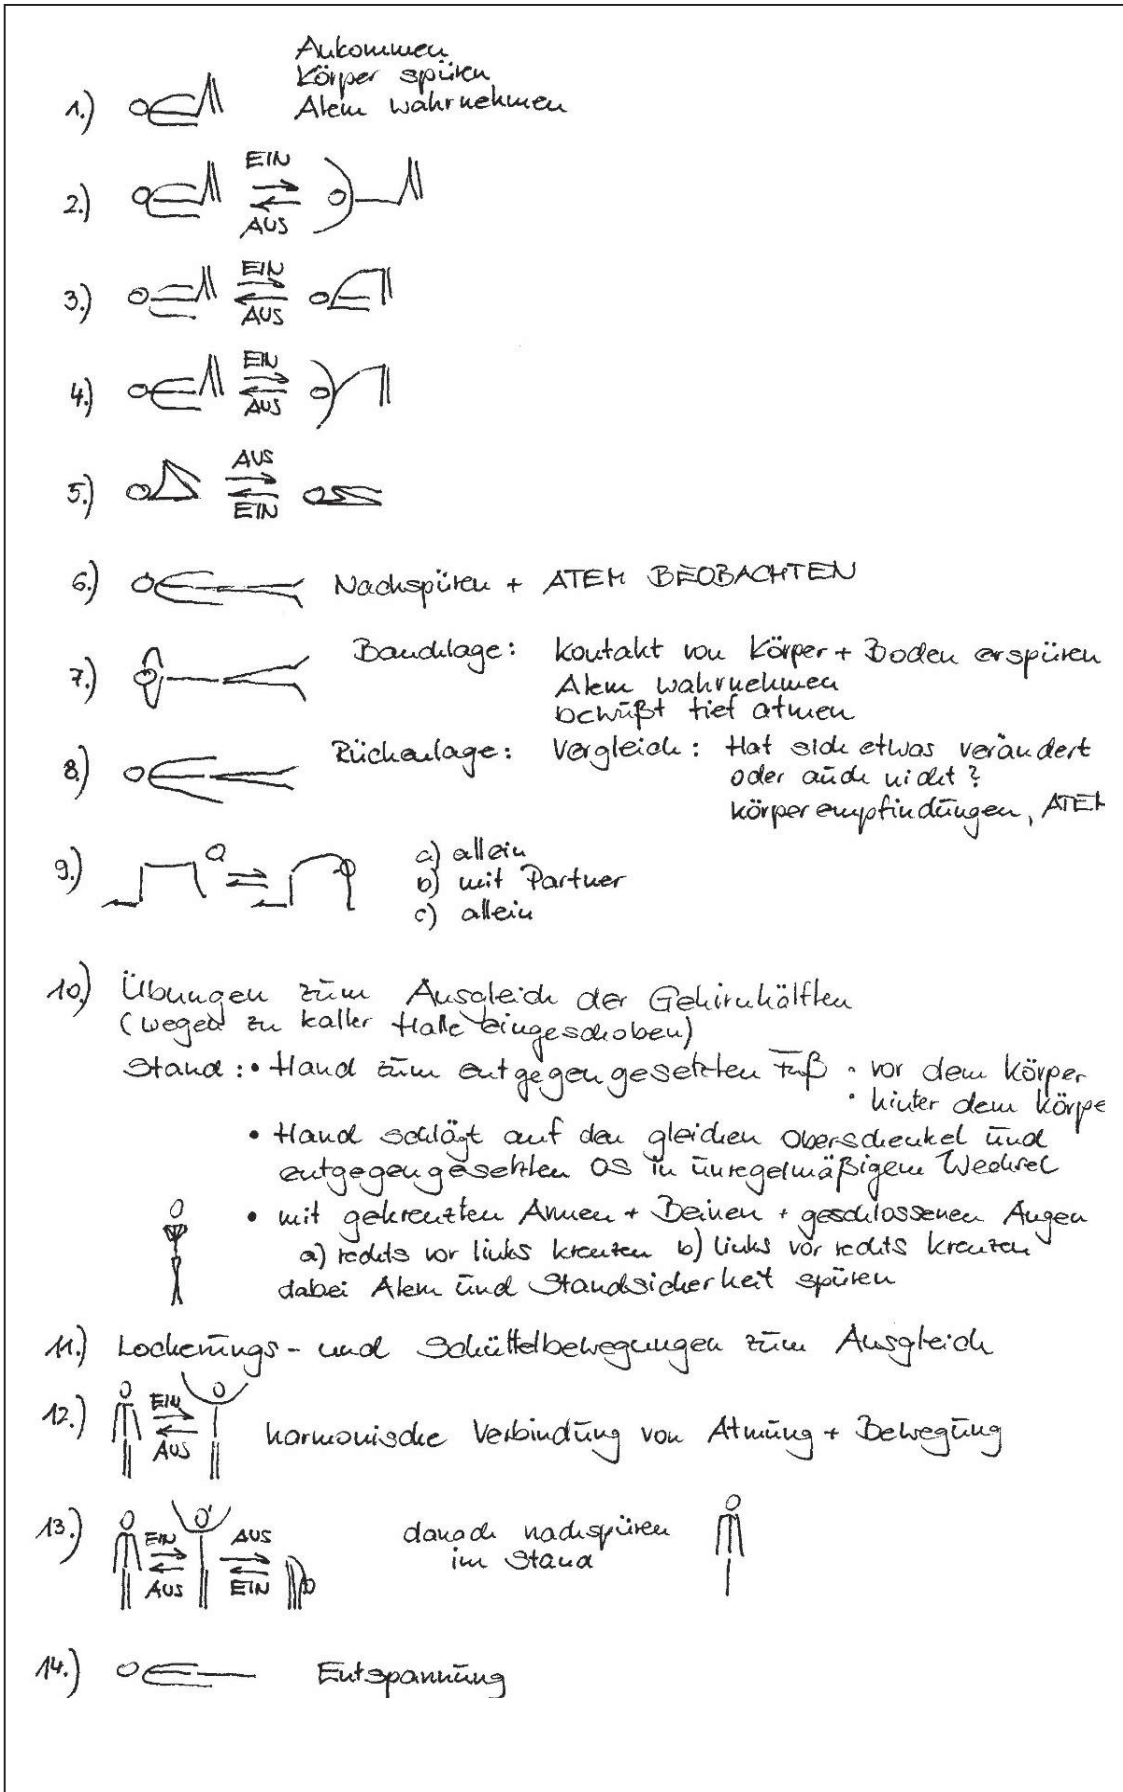 Ankommen
Körper spüren
1.) Atem wahrnehmen
EIN
2.)
AUS
EIN
3.)
AUS
EIN
4.)
AUS
AUS
5.)
EIN
6.) Nachspüren + ATEM BEOBACHTEN
7.) Bauchlage: Kontakt von Körper + Boden erspüren
Atem wahrnehmen
bewußt tief atmen
8.) Rückenlage: Vergleich: Hat sich etwas verändert
oder auch nicht?
Körperempfindungen, ATEM
9.) a) allein
b) mit Partner
c) allein
10.) Übungen zum Ausgleich der Gehirnhälften
(wegen zu kalter Halle eingeschoben)
Stand: • Hand zum entgegengesetzten Fuß • vor dem Körper
• hinter dem Körpe
• Hand schlägt auf den gleichen Oberschenkel und
entgegengesetzten OS in unregelmäßigem Wechsel
• mit gekreuzten Armen + Beinen + geschlossenen Augen
a) rechts vor links kreuzen b) links vor rechts kreuzen
dabei Atem und Standsicherheit spüren
11.) Lockerungs- und Schüttelbewegungen zum Ausgleich
12.) EIN
AUS harmonische Verbindung von Atmung + Bewegung
13.) EIN AUS danach nachspüren
AUS EIN im Stand
14.) Entspannung